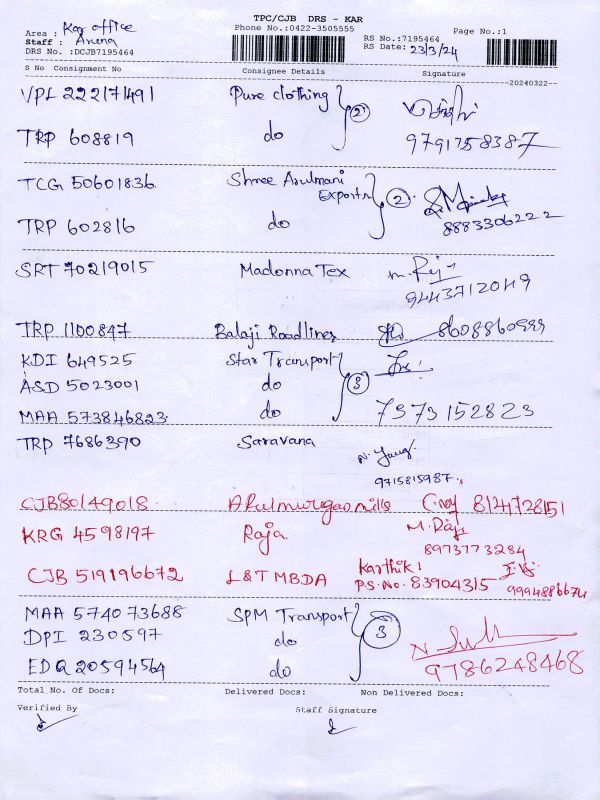 TPC/CJB DRS - KAR
Phone No.:0422-3505555
Area : Kar office
Staff : Arena
DRS No. :DCJB7195464
RS No.:7195464
RS Date: 23/3/24
Page No.:1
S No Consignment No Consignee Details Signature
20240322
VPL 222171491 Pure clothing 2
TRP 608819 do 9791758387
TCG 50601836 Shree Arulmani Exports 2
TRP 602816 do 8883306222
SRT 70219015 Madonna Tex
9443712049
TRP 1100847 Balaji Roadlines
KDI 649525 Star Transport 3
ASD 5023001 do
MAA 573846823 do 7373152823
TRP 7686390 Saravana
9715815987
CJB80149018 Arulmurugan mills 8141728151
KRG 4598197 Raja M. Raja
8973773284
CJB 519196672 L&T MBDA Karthik
P.S.No. 83904315
MAA 574073688 SPM Transport 3
DPI 230597 do
EDQ 20594564 do 9786248468
Total No. Of Docs: Delivered Docs: Non Delivered Docs:
Verified By Staff Signature